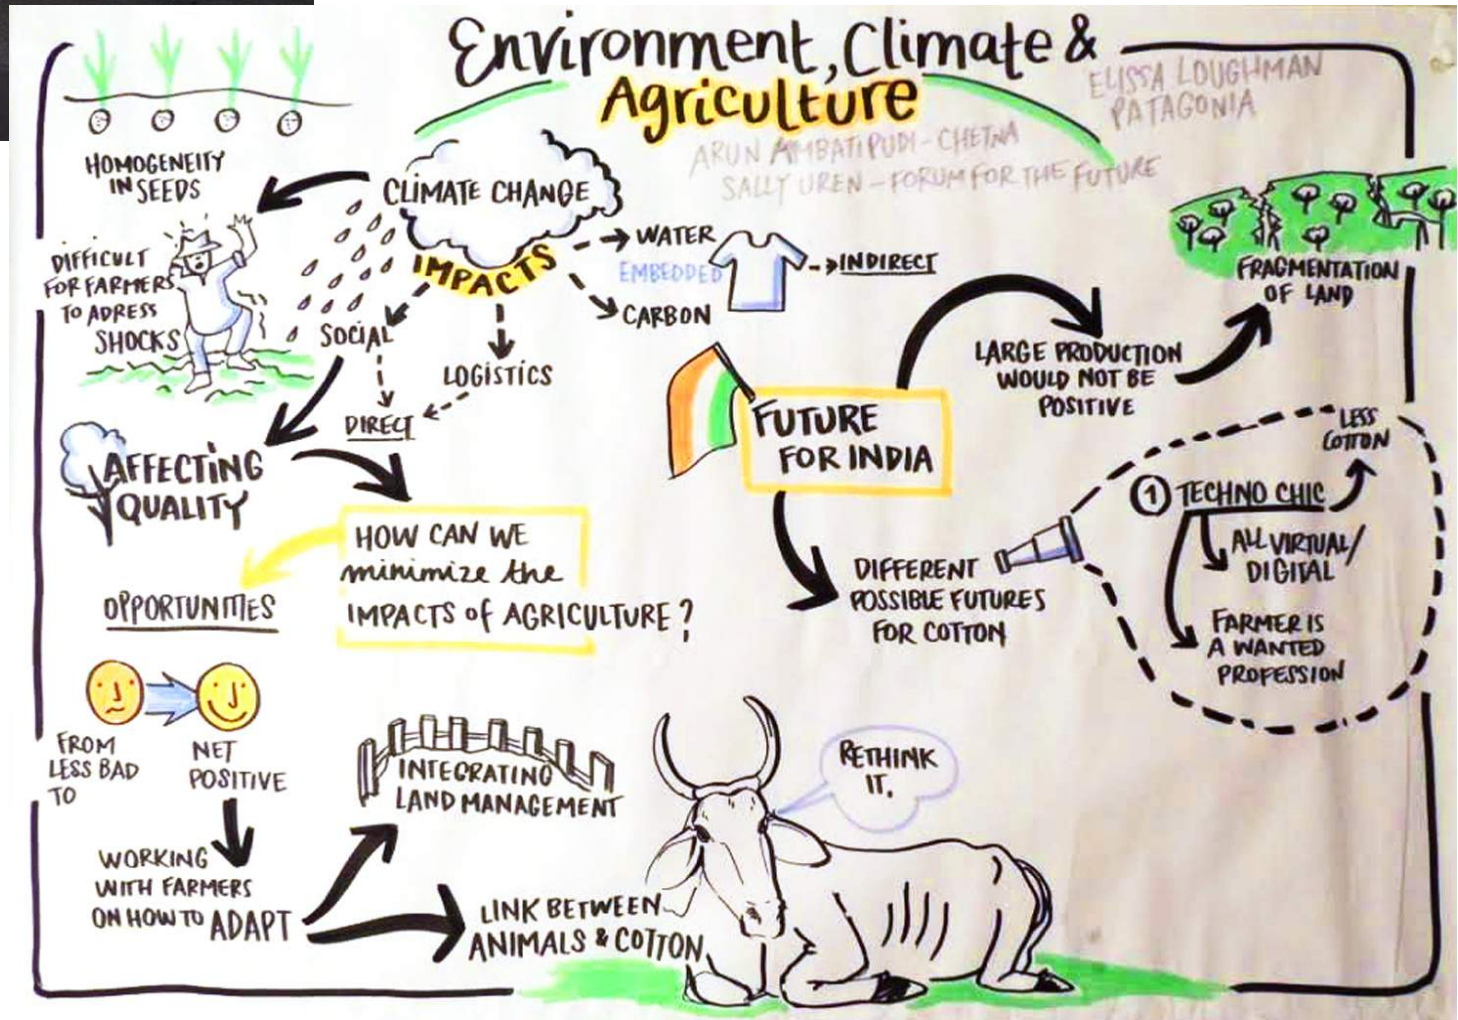 Environment, Climate &
Agriculture
ELISSA LOUGHMAN
PATAGONIA
ARUN AMBATIPUDI - CHETNA
SALLY UREN - FORUM FOR THE FUTURE
HOMOGENEITY
IN SEEDS
DIFFICULT
FOR FARMERS
TO ADRESS
SHOCKS
CLIMATE CHANGE
IMPACTS
WATER
EMBEDDED
CARBON
INDIRECT
SOCIAL
LOGISTICS
DIRECT
AFFECTING
QUALITY
HOW CAN WE
minimize the
IMPACTS of AGRICULTURE?
OPPORTUNITIES
FROM
LESS BAD
TO
NET
POSITIVE
WORKING
WITH FARMERS
ON HOW TO ADAPT
INTEGRATING
LAND MANAGEMENT
LINK BETWEEN
ANIMALS & COTTON
RETHINK
IT.
FUTURE
FOR INDIA
LARGE PRODUCTION
WOULD NOT BE
POSITIVE
FRAGMENTATION
OF LAND
DIFFERENT
POSSIBLE FUTURES
FOR COTTON
1 TECHNO CHIC
LESS
COTTON
ALL VIRTUAL/
DIGITAL
FARMER IS
A WANTED
PROFESSION